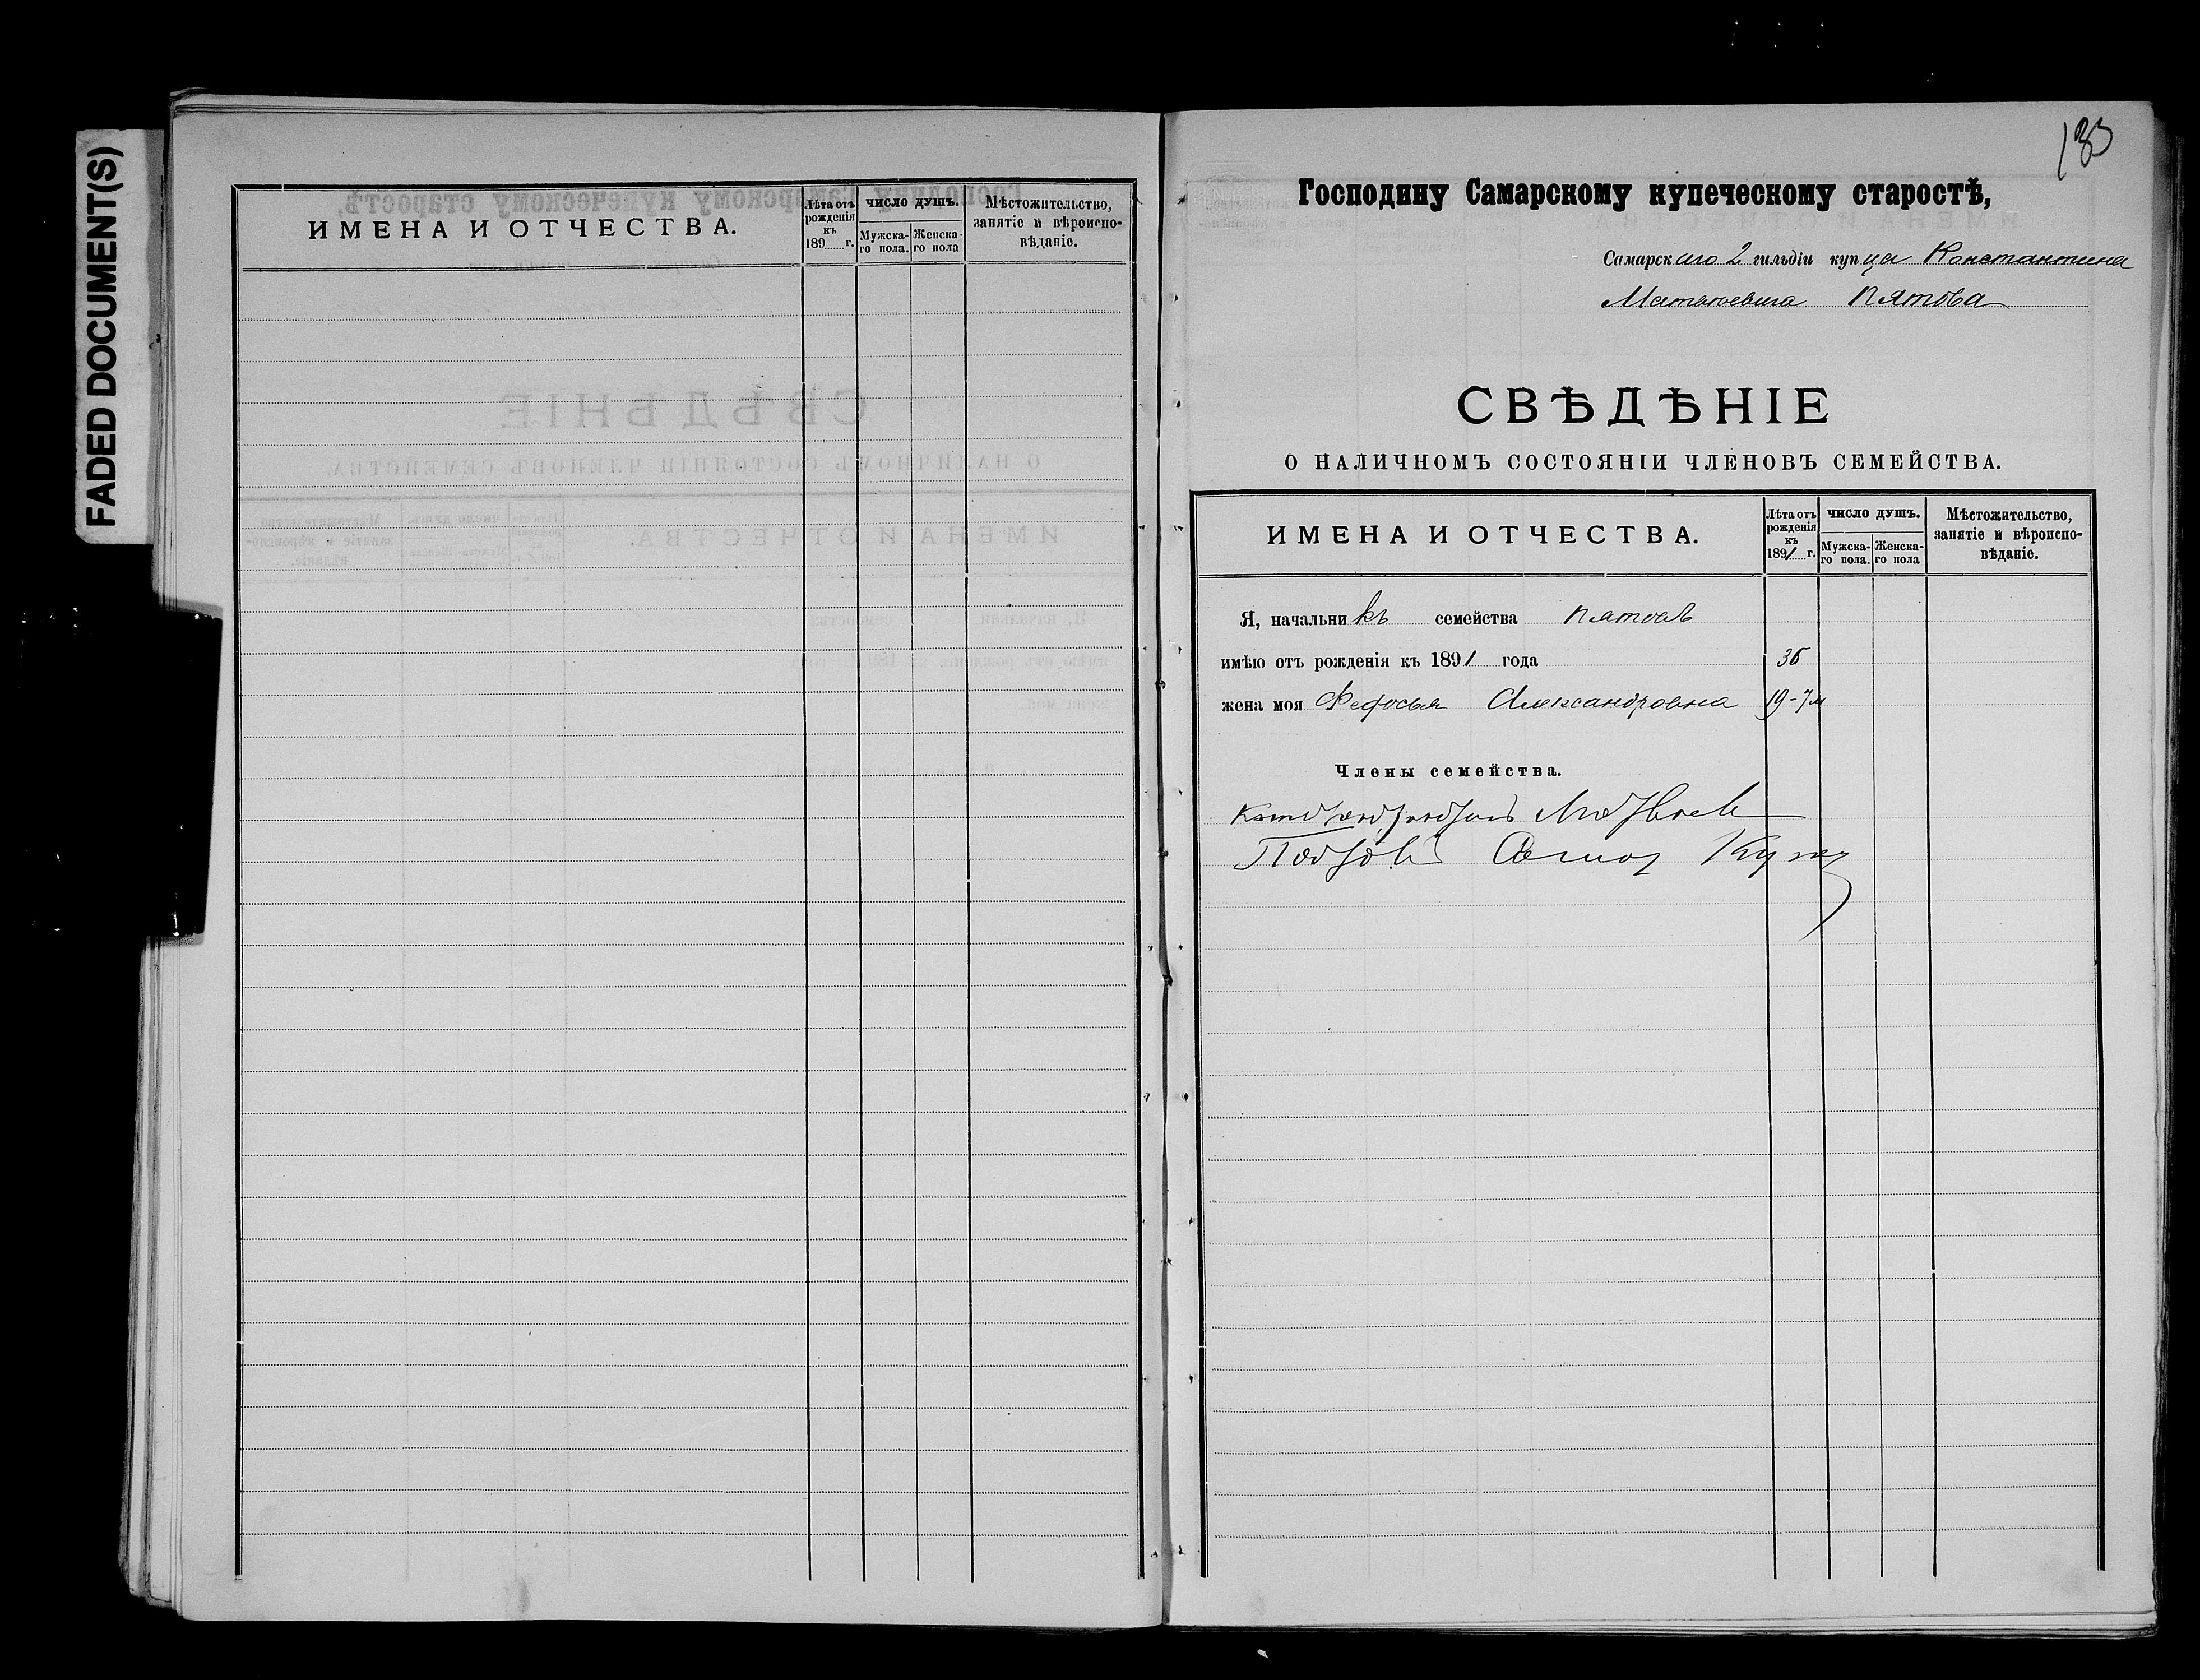 FADED DOCUMENT(S)
ИМЕНА И ОТЧЕСТВА.
Лѣта отъ рожденія къ 189 г.
ЧИСЛО ДУШЪ.
Мужска-го пола.
Женска-го пола
Мѣстожительство, занятіе и вѣроиспо-вѣданіе.
183
Господину Самарскому купеческому старостѣ,
Самарскаго 2 гильдіи купца Константина
Матвѣевича Пятова
СВѢДѢНІЕ
О НАЛИЧНОМЪ СОСТОЯНІИ ЧЛЕНОВЪ СЕМЕЙСТВА.
ИМЕНА И ОТЧЕСТВА.
Лѣта отъ рожденія къ 1891 г.
ЧИСЛО ДУШЪ.
Мужска-го пола.
Женска-го пола
Мѣстожительство, занятіе и вѣроиспо-вѣданіе.
Я, начальникъ семейства Пятовъ
имѣю отъ рожденія къ 1891 года
жена моя Федосья Александровна 19-7м
Члены семейства.